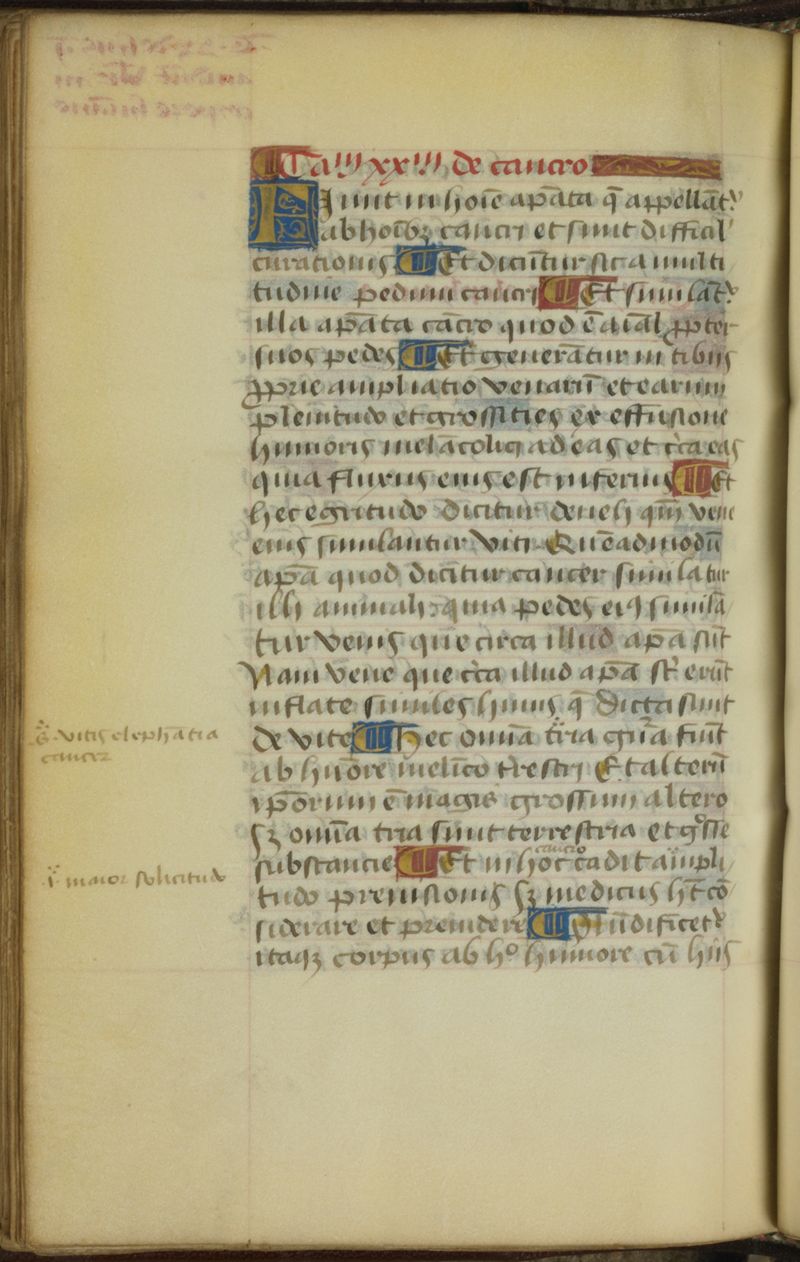 Ca^m xx^m de cancro
Fiunt in hoīe apāta q̄ appellāt᷑
ab hoībꝫ cancri et sunt difficil'
curationis Et dicūtur sic a multi
tudine pedum cancri Et similāt᷑
illa apāta cācro quod ē aīal ꝓpter
suos pedes Et generātur in tibiis
ꝓprie ampliatio venarū et earum
plenitudo et grossities ex effusione
humoris melācolici ad eas et c̄ca eas
quia fluxus eius est inferius Et
hec egritudo dicitur deneli qm̄ vene
eius similantur viti Quēadmodū
apā quod dicitur cancer similatur
illi animali: quia pedes eiꝰ simila
tur venis que circa illud apā sūt
Nam vene que c̄ca illud apā st̄ erūt
inflate similes hiniis q̄ dicta sunt
de vite Hec omīa tria gn̄a fiūt
ab hūore melīco tr̄estri Et alterū
ipsorum ē magis grossum altero
sꝫ omīa tria sunt terrestria et gͦsse
substancie Et in hoc cancro cadit ampli
tudo preuisionis sꝫ medicus hꝫ cō
siderare et preuidere Mūdificet᷑
itaqꝫ corpus ab hͦ humore cū hiis
ĝ vitis elephātia
cancer
maior solicitudo